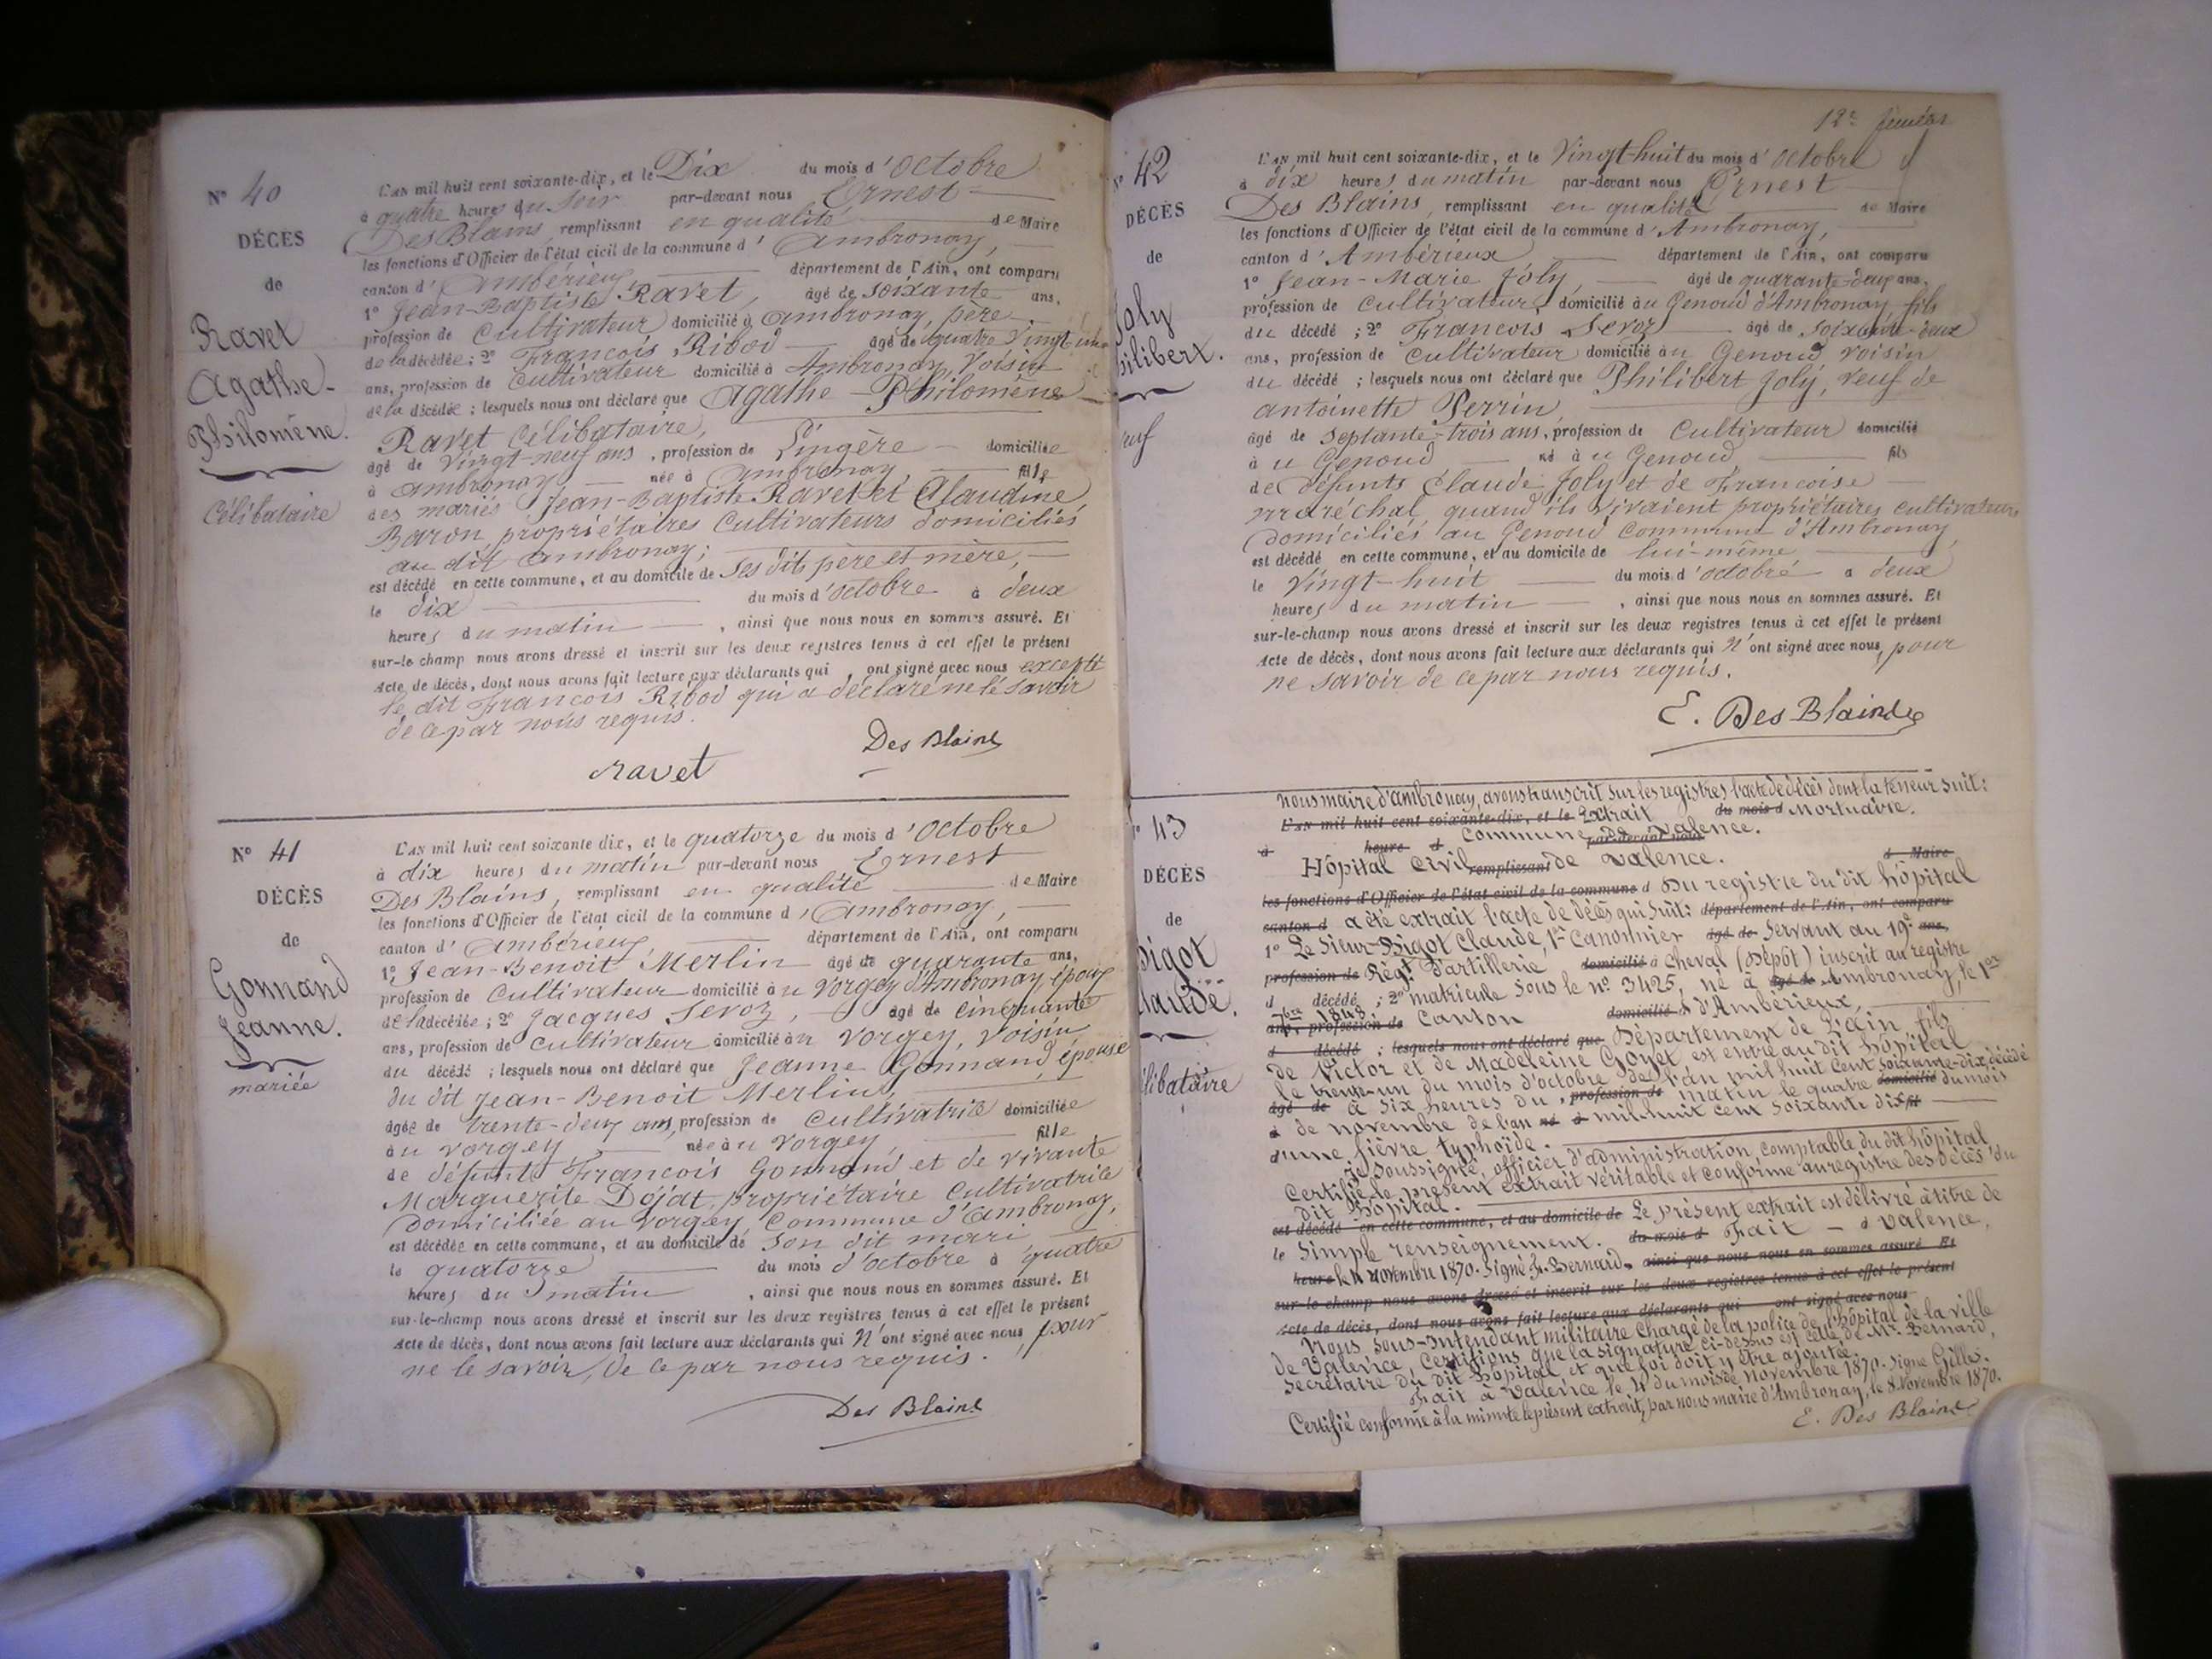 N° 40
DÉCÈS
de
Ravet
Agathe-
Philomène.
Célibataire
L'AN mil huit cent soixante-dix, et le Dix du mois d'octobre
à quatre heures du soir par-devant nous Ernest
Des Blains, remplissant en qualité de Maire
les fonctions d'Officier de l'état civil de la commune d'Ambronay,
canton d'Ambérieux département de l'Ain, ont comparu
1° Jean-Baptiste Ravet, âgé de soixante ans,
profession de Cultivateur domicilié à Ambronay, père
de la décédée; 2° François Ribod âgé de quatre vingt un
ans, profession de Cultivateur domicilié à Ambronay, Voisin
de la décédée; lesquels nous ont déclaré que Agathe Philomène
Ravet Célibataire,
âgé de Vingt-neuf ans, profession de Lingère domiciliée
à Ambronay née à Ambronay, fille
des mariés Jean-Baptiste Ravet et Claudine
Baron, propriétaires Cultivateurs domiciliés
au dit Ambronay;
est décédé en cette commune, et au domicile de ses dits père et mère,
le dix du mois d'octobre à deux
heures du matin, ainsi que nous nous en sommes assuré. Et
sur-le champ nous avons dressé et inscrit sur les deux registres tenus à cet effet le présent
Acte de décès, dont nous avons fait lecture aux déclarants qui ont signé avec nous excepté
le dit François Ribod qui a déclaré ne le savoir
de ce par nous requis.
ravet Des Blains
N° 41
DÉCÈS
de
Gonnand
Jeanne.
mariée
L'AN mil huit cent soixante dix, et le quatorze du mois d'octobre
à dix heures du matin par-devant nous Ernest
Des Blains, remplissant en qualité de Maire
les fonctions d'Officier de l'état civil de la commune d'Ambronay,
canton d'Ambérieux département de l'Ain, ont comparu
1° Jean-Benoit Merlin âgé de quarante ans,
profession de Cultivateur domicilié au Vorgey d'Ambronay, époux
de la décédée; 2° Jacques Servoz, âgé de cinquante
ans, profession de Cultivateur domicilié au Vorgey, Voisin
du décédé; lesquels nous ont déclaré que Jeanne Gonnand, épouse
du dit Jean-Benoit Merlin,
âgée de trente-deux ans, profession de Cultivatrice domiciliée
au Vorgey née au Vorgey, fille
de défunt François Gonnand et de vivante
Marguerite Dojat, propriétaire Cultivatrice
domiciliée au Vorgey, Commune d'Ambronay,
est décédée en cette commune, et au domicile de son dit mari
le quatorze du mois d'octobre à quatre
heures du matin, ainsi que nous nous en sommes assuré. Et
sur-le-champ nous avons dressé et inscrit sur les deux registres tenus à cet effet le présent
Acte de décès, dont nous avons fait lecture aux déclarants qui n'ont signé avec nous, pour
ne le savoir, de ce par nous requis.
Des Blains
12e
N° 42
DÉCÈS
de
Joly
hilibert.
euf
L'AN mil huit cent soixante-dix, et le Vingt-huit du mois d'octobre
à dix heures du matin par-devant nous Ernest
Des Blains, remplissant en qualité de Maire
les fonctions d'Officier de l'état civil de la commune d'Ambronay,
canton d'Ambérieux département de l'Ain, ont comparu
1° Jean-Marie Joly, âgé de quarante-deux ans,
profession de Cultivateur, domicilié au Genoud d'Ambronay fils
du décédé; 2° François Servoz âgé de soixante-deux
ans, profession de Cultivateur domicilié au Genoud voisin
du décédé; lesquels nous ont déclaré que Philibert Joly, veuf de
antoinette Perrin,
âgé de septante-trois ans, profession de Cultivateur domicilié
à u Genoud né à u Genoud fils
de défunts Claude Joly et de Françoise
maréchal, quand ils vivaient propriétaires cultivateurs
domiciliés au Genoud commune d'Ambronay,
est décédé en cette commune, et au domicile de lui-même
le Vingt-huit du mois d'octobre à deux
heures du matin, ainsi que nous nous en sommes assuré. Et
sur-le-champ nous avons dressé et inscrit sur les deux registres tenus à cet effet le présent
Acte de décès, dont nous avons fait lecture aux déclarants qui n'ont signé avec nous, pour
ne savoir de ce par nous requis.
E. Des Blains
43
DÉCÈS
de
igot
laude.
élibataire
nous maire d'Ambronay, avons transcrit sur les registres l'acte de décès dont la teneur suit:
L'AN mil huit cent soixante-dix, et le Extrait du mois d Mortuaire.
Commune de Valence.
à heure d par-devant nous
Hôpital Civil remplissant de Valence. d Maire
les fonctions d'Officier de l'état civil de la commune d Du registre du dit hôpital
canton d a été extrait l'acte de décès qui suit: département de l'Ain, ont comparu
1° Le Sieur Bigot Claude, 1er Canonnier âgé de Servant au 19e ans,
profession de Régt d'artillerie domicilié à Cheval (Dépôt) inscrit au registre
d décédé; 2° matricule sous le n° 3425, né à âgé de Ambronay, le 1er
7bre 1848
ans, profession de Canton domicilié à d'Ambérieux,
d décédé; lesquels nous ont déclaré que Département de l'ain, fils
de Victor et de Madeleine Goyet est entré au dit hôpital
le trente-un du mois d'octobre de l'an mil huit cent soixante-dix, décédé
âgé de à six heures du, profession de matin le quatre domicilié du mois
à de novembre de l'an né à mil huit cent soixante dix fil
d'une fièvre typhoïde.
je soussigné, officier d'administration, comptable du dit hôpital
Certifie le présent extrait véritable et conforme au registre des décès du
dit hôpital.
est décédé en cette commune, et au domicile de Le présent extrait est délivré à titre de
le Simple renseignement. du mois d Fait à Valence,
heure le 4 novembre 1870. Signé F. Bernard. ainsi que nous nous en sommes assuré Et
sur-le champ nous avons dressé et inscrit sur les deux registres tenus à cet effet le présent
Acte de décès, dont nous avons fait lecture aux déclarants qui ont signé avec nous
Nous, Sous-Intendant militaire chargé de la police de l'hôpital de la ville
de Valence, Certifions que la signature ci-dessus est celle de Mr. Bernard,
Secrétaire du dit hôpital et que foi doit y être ajoutée.
Fait à Valence le 4 du mois de novembre 1870. Signé Gilles.
Certifié conforme à la minute le présent extrait, par nous maire d'Ambronay, le 8 Novembre 1870.
E. Des Blains